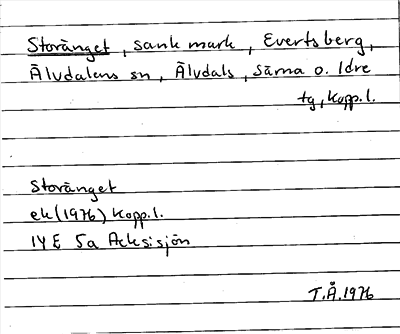 Storänget, sank mark, Evertsberg,
Älvdalens sn, Älvdals, Särna o. Idre
tg, Kopp.l.
Storänget
ek (1976) Kopp.l.
14 E 5a Acksisjön
T.Å. 1976